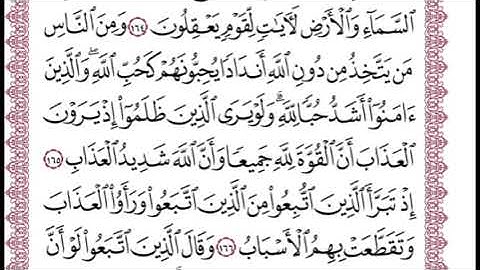 ٱلسَّمَآءِ وَٱلْأَرْضِ لَأٓيَٰتٍ لِّقَوْمٍ يَعْقِلُونَ ١٦٤ وَمِنَ ٱلنَّاسِ
مَن يَتَّخِذُ مِن دُونِ ٱللَّهِ أَندَادًا يُحِبُّونَهُمْ كَحُبِّ ٱللَّهِ ۖ وَٱلَّذِينَ
ءَامَنُوٓا۟ أَشَدُّ حُبًّا لِّلَّهِ ۗ وَلَوْ يَرَى ٱلَّذِينَ ظَلَمُوٓا۟ إِذْ يَرَوْنَ
ٱلْعَذَابَ أَنَّ ٱلْقُوَّةَ لِلَّهِ جَمِيعًا وَأَنَّ ٱللَّهَ شَدِيدُ ٱلْعَذَابِ ١٦٥
إِذْ تَبَرَّأَ ٱلَّذِينَ ٱتُّبِعُوا۟ مِنَ ٱلَّذِينَ ٱتَّبَعُوا۟ وَرَأَوُا۟ ٱلْعَذَابَ
وَتَقَطَّعَتْ بِهِمُ ٱلْأَسْبَابُ ١٦٦ وَقَالَ ٱلَّذِينَ ٱتَّبَعُوا۟ لَوْ أَنَّ